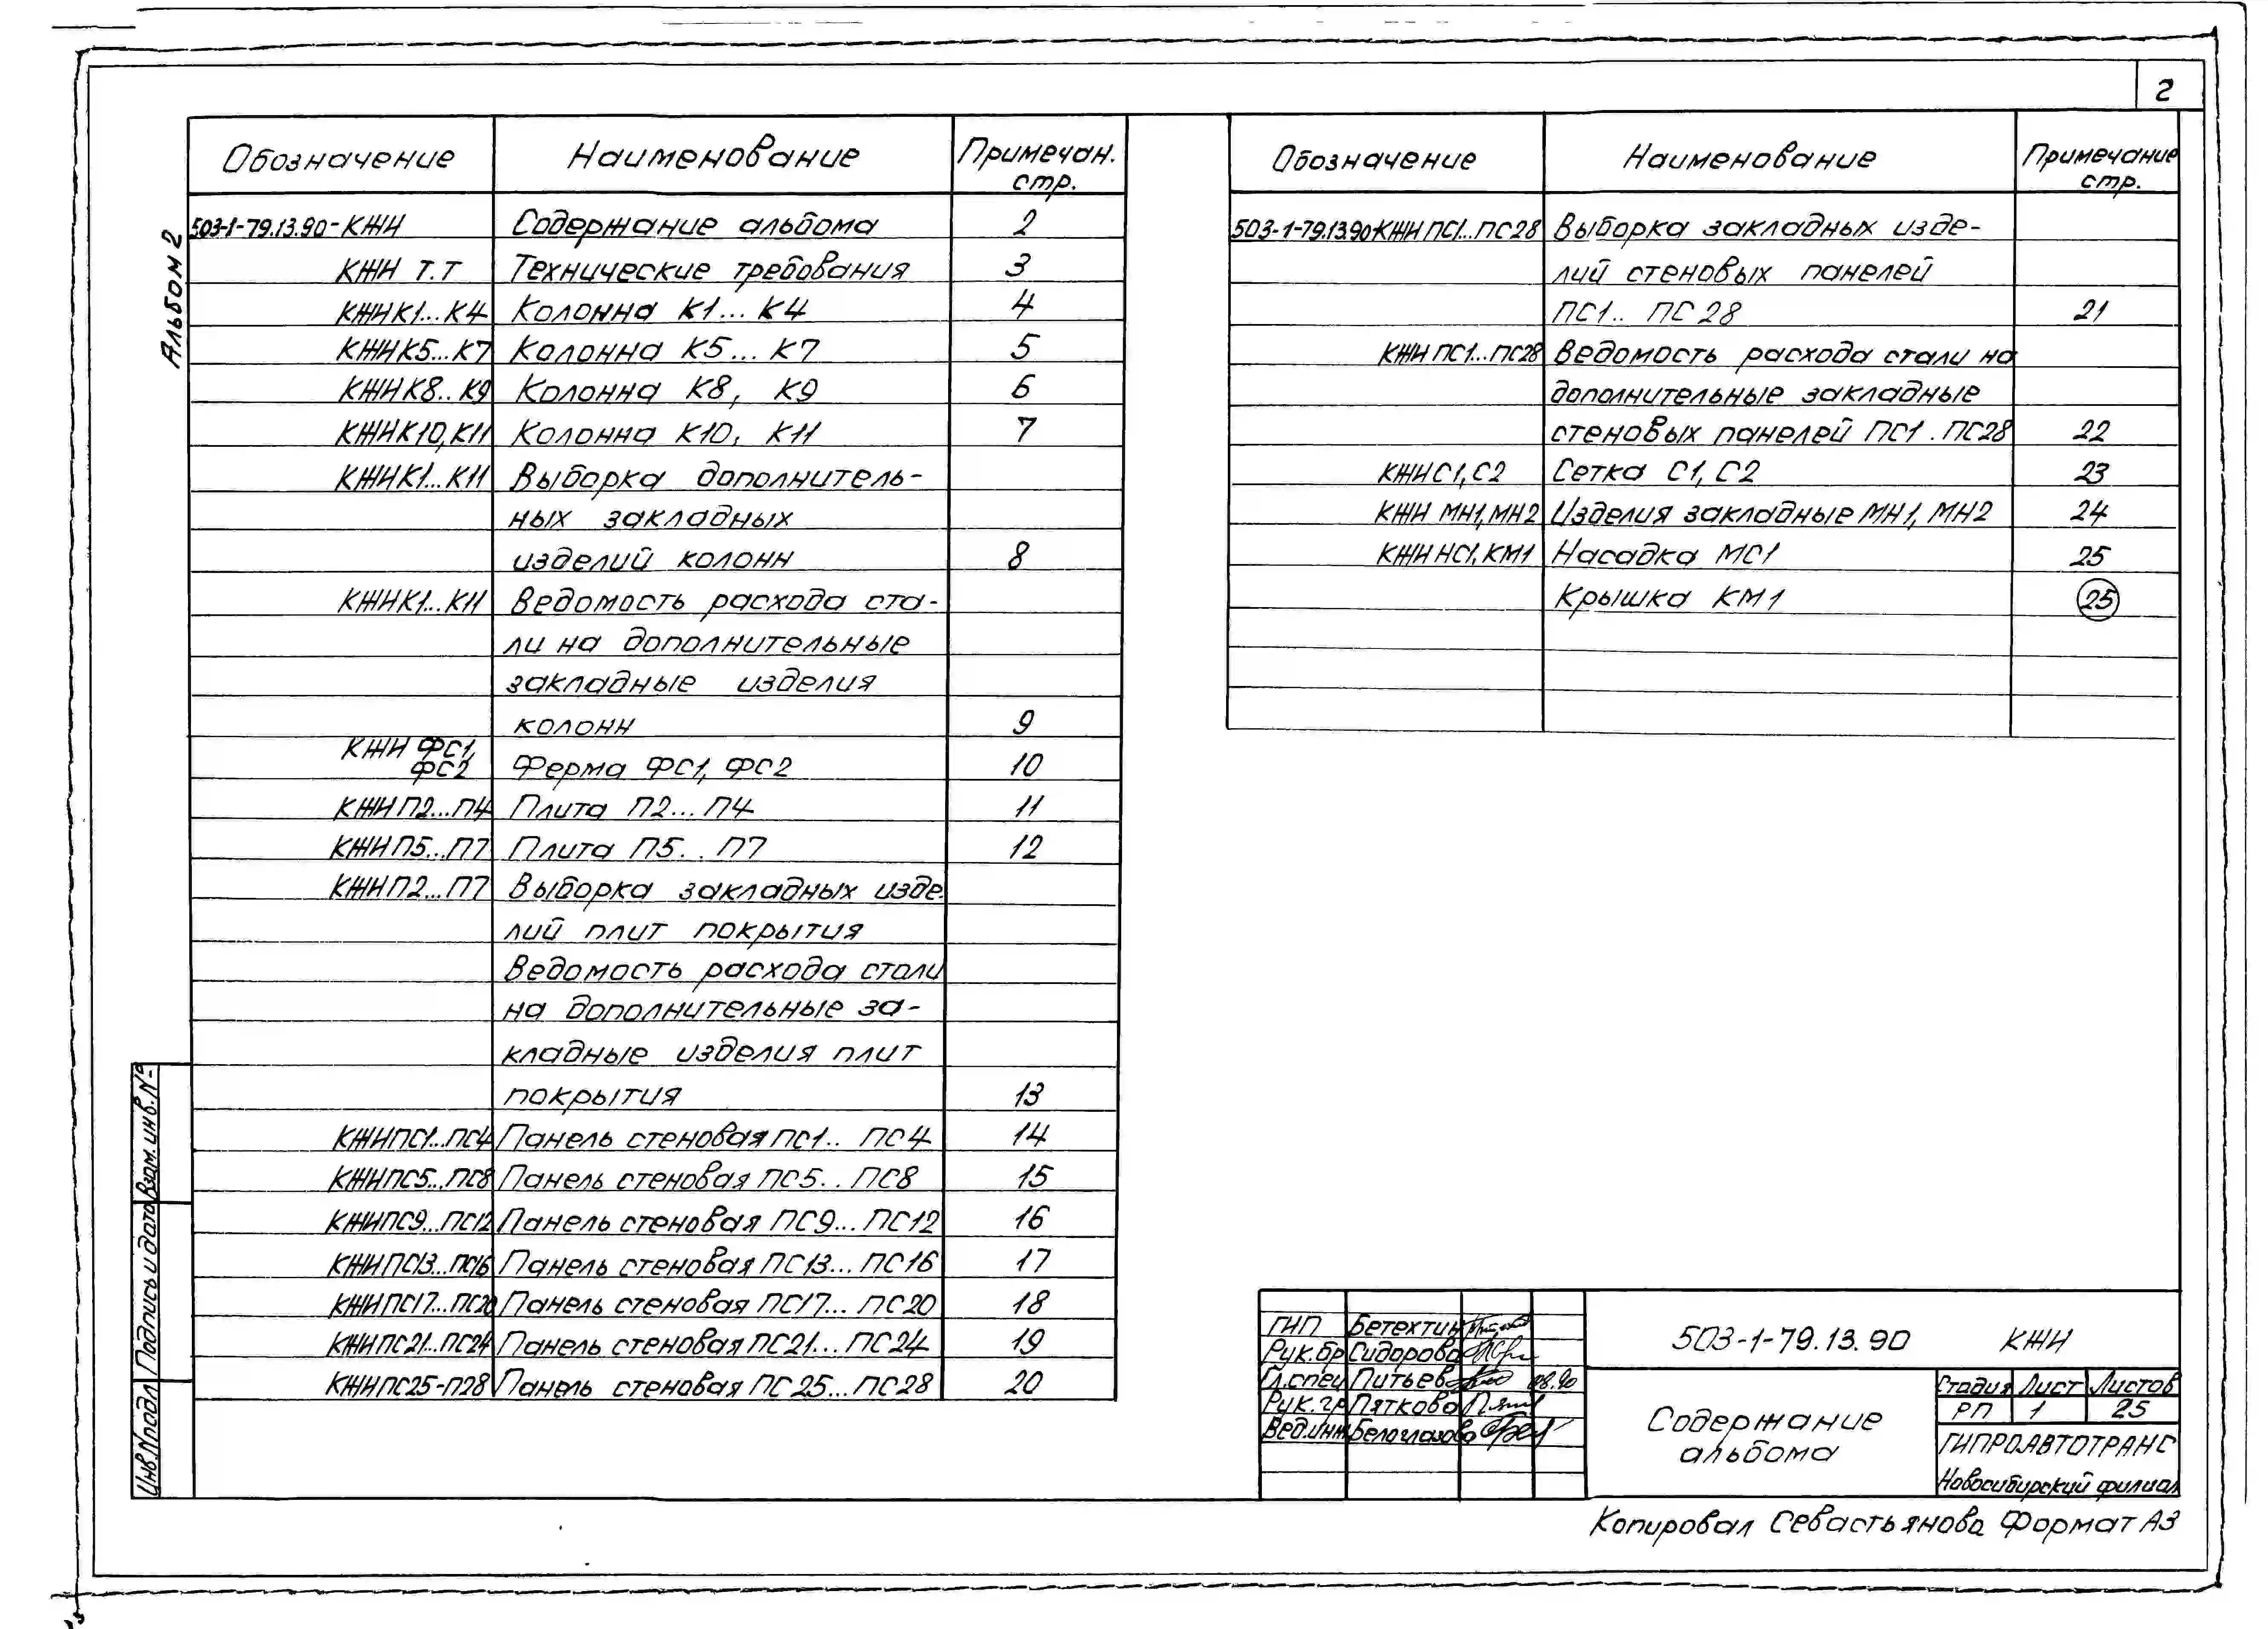 2
Альбом 2
Обозначение Наименование Примечан. стр.
503-1-79.13.90-КЖИ Содержание альбома 2
КЖИ Т.Т Технические требования 3
КЖИ К1...К4 Колонна К1...К4 4
КЖИ К5...К7 Колонна К5...К7 5
КЖИ К8..К9 Колонна К8, К9 6
КЖИ К10, К11 Колонна К10, К11 7
КЖИ К1...К11 Выборка дополнитель-
ных закладных
изделий колонн 8
КЖИ К1...К11 Ведомость расхода ста-
ли на дополнительные
закладные изделия
колонн 9
КЖИ ФС1,
ФС2 Ферма ФС1, ФС2 10
КЖИ П2...П4 Плита П2...П4 11
КЖИ П5...П7 Плита П5..П7 12
КЖИ П2...П7 Выборка закладных изде-
лий плит покрытия
Ведомость расхода стали
на дополнительные за-
кладные изделия плит
покрытия 13
КЖИ ПС1...ПС4 Панель стеновая ПС1..ПС4 14
КЖИ ПС5...ПС8 Панель стеновая ПС5..ПС8 15
КЖИ ПС9...ПС12 Панель стеновая ПС9...ПС12 16
КЖИ ПС13...ПС16 Панель стеновая ПС13...ПС16 17
КЖИ ПС17...ПС20 Панель стеновая ПС17...ПС20 18
КЖИ ПС21...ПС24 Панель стеновая ПС21...ПС24 19
КЖИ ПС25-П28 Панель стеновая ПС25...ПС28 20
Обозначение Наименование Примечание стр.
503-1-79.13.90-КЖИ ПС1...ПС28 Выборка закладных изде-
лий стеновых панелей
ПС1..ПС28 21
КЖИ ПС1...ПС28 Ведомость расхода стали на
дополнительные закладные
стеновых панелей ПС1.ПС28 22
КЖИ С1, С2 Сетка С1, С2 23
КЖИ МН1, МН2 Изделия закладные МН1, МН2 24
КЖИ НС1, КМ1 Насадка МС1 25
Крышка КМ1 25
Взам. инв. №
Подпись и дата
Инв. № подл
ГИП Бетехтин
Рук.бр Сидорова
Гл.спец Питьев 08.90
Рук.гр Пяткова
Вед.инж Белоглазова
503-1-79.13.90 КЖИ
Содержание
альбома
Стадия Лист Листов
РП 1 25
ГИПРОАВТОТРАНС
Новосибирский филиал
Копировал Севастьянова Формат А3